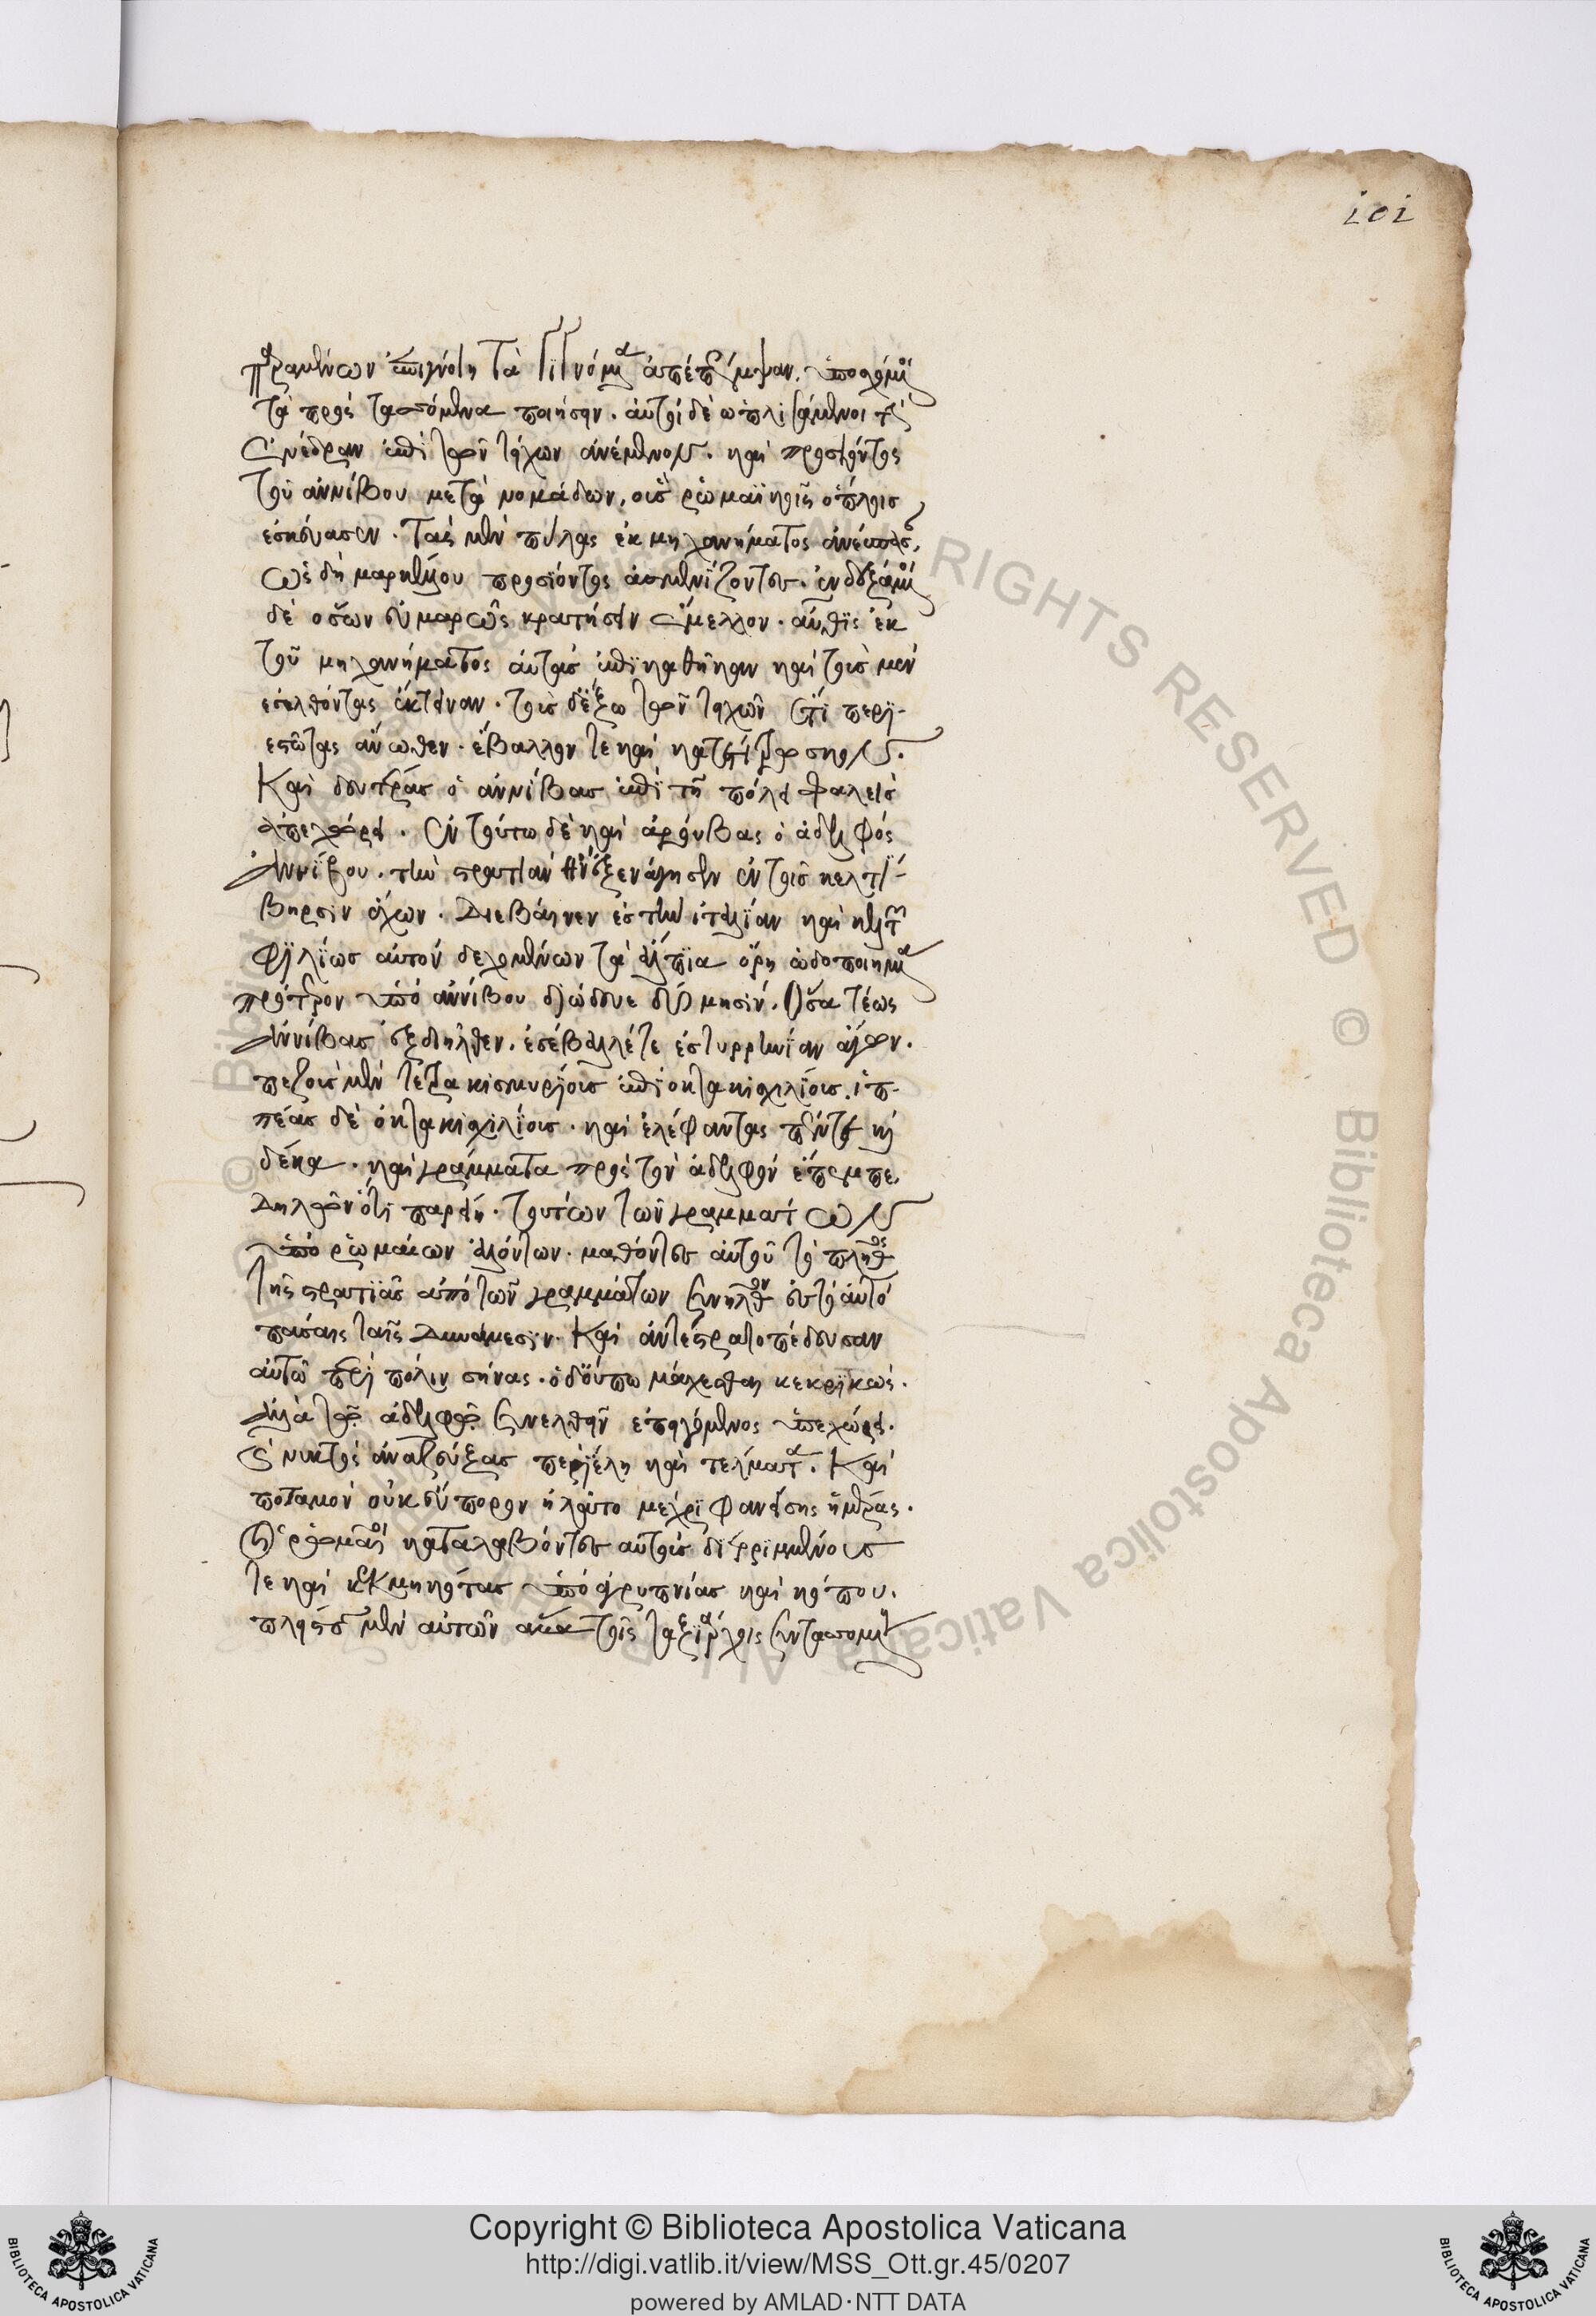 ιοι
πεπραγμένων ἐπιγνόντες τὰ γιγνόμενα ἀπέπεμψαν. ὑποσχόμενοι
τὰ προστασσόμενα ποιήσειν. αὐτοὶ δὲ ὡπλισάμενοι τε
ἐνέδραν ἐπὶ τῶν τειχῶν ἀνέμενον. καὶ προσιόντος
τοῦ ἀννίβου μετὰ νομάδων, οὓς ῥωμαϊκοῖς ὅπλοις
ἐσκεύασεν. τὰς μὲν πύλας ἐκ μηχανήματος ἀνέσπασαν,
ὡς δὴ μαρκέλλου προσιόντος ἀσμενίζοντες. ἐνδεξάμενοι
δὲ ὅσων εὐμαρῶς κρατήσειν ἔμελλον. αὖθις ἐκ
τοῦ μηχανήματος αὐτὰς ἐπικαθῆκαν καὶ τοὺς μὲν
ἐσελθόντας ἔκτειναν. τοὺς δ' ἔξω τῶν τειχῶν ἔτι περι-
εστῶτας ἄνωθεν. ἔβαλλόν τε καὶ κατετίτρωσκον.
Καὶ δευτέρας ὁ ἀννίβας ἐπὶ τῇ πόλει σφαλεὶς
ἀπεχώρει. Ἐν τούτω δὲ καὶ ἀσρούβας ὁ ἀδελφὸς
Ἀννίβου. τὴν στρατιὰν ἣν ἐξενάγησεν ἐν τοῖς κελτί-
βηρσιν ἔχων. Διέβαινεν ἐς τὴν ἰταλίαν καὶ κελτῶν
φιλίως αὐτὸν δεχομένων τὰ ἄλπια ὄρη ὡδοποιημένα
πρότερον ὑπὸ ἀννίβου διώδευε δύο μησίν. Ὅσα τέως
Ἀννίβας ἓξ διῆλθεν. ἐσέβαλλέ τε ἐς τυρρηνίαν ἄγων.
πεζοὺς μὲν τετρακισμυρίους ἐπὶ ὀκτακισχιλίοις. ἱπ-
πέας δὲ ὀκτακισχιλίους. καὶ ἐλέφαντας πέντε καὶ
δέκα. καὶ γράμματα πρὸς τὸν ἀδελφὸν ἔπεμπε
Δηλῶν ὅτι παρείη. τούτων τῶν γραμμάτων
ὑπὸ ῥωμαίων ἁλόντων. μαθόντες αὐτοῦ τὸ πλῆθος
τῆς στρατιᾶς ἀπὸ τῶν γραμμάτων συνῆλθον ἐς τὸ αὐτὸ
πάσαις ταῖς Δυνάμεσιν. Καὶ ἀντεστρατοπέδευσαν
αὐτῶ περὶ πόλιν σήνας. ὁ δ' οὔπω μάχεσθαι κεκρικώς.
Ἀλλὰ τῶ ἀδελφῶ συνελθεῖν ἐπειγόμενος ὑπεχώρει.
Ἐ νυκτὸς ἀναζεύξας περὶ ἕλη καὶ τέλματα. Καὶ
ποταμὸν οὐκ εὔπορον ἠλᾶτο μέχρι φανείσης ἡμέρας.
Οἱ ῥωμαῖοι καταλαβόντες αὐτοὺς διερριμμένους
τε καὶ κεκμηκότας ὑπὸ ἀγρυπνίας καὶ κόπου.
πλείστους μὲν αὐτῶν ἅμα τοῖς ταξιάρχοις συντασσομένους
Copyright © Biblioteca Apostolica Vaticana
http://digi.vatlib.it/view/MSS_Ott.gr.45/0207
powered by AMLAD·NTT DATA